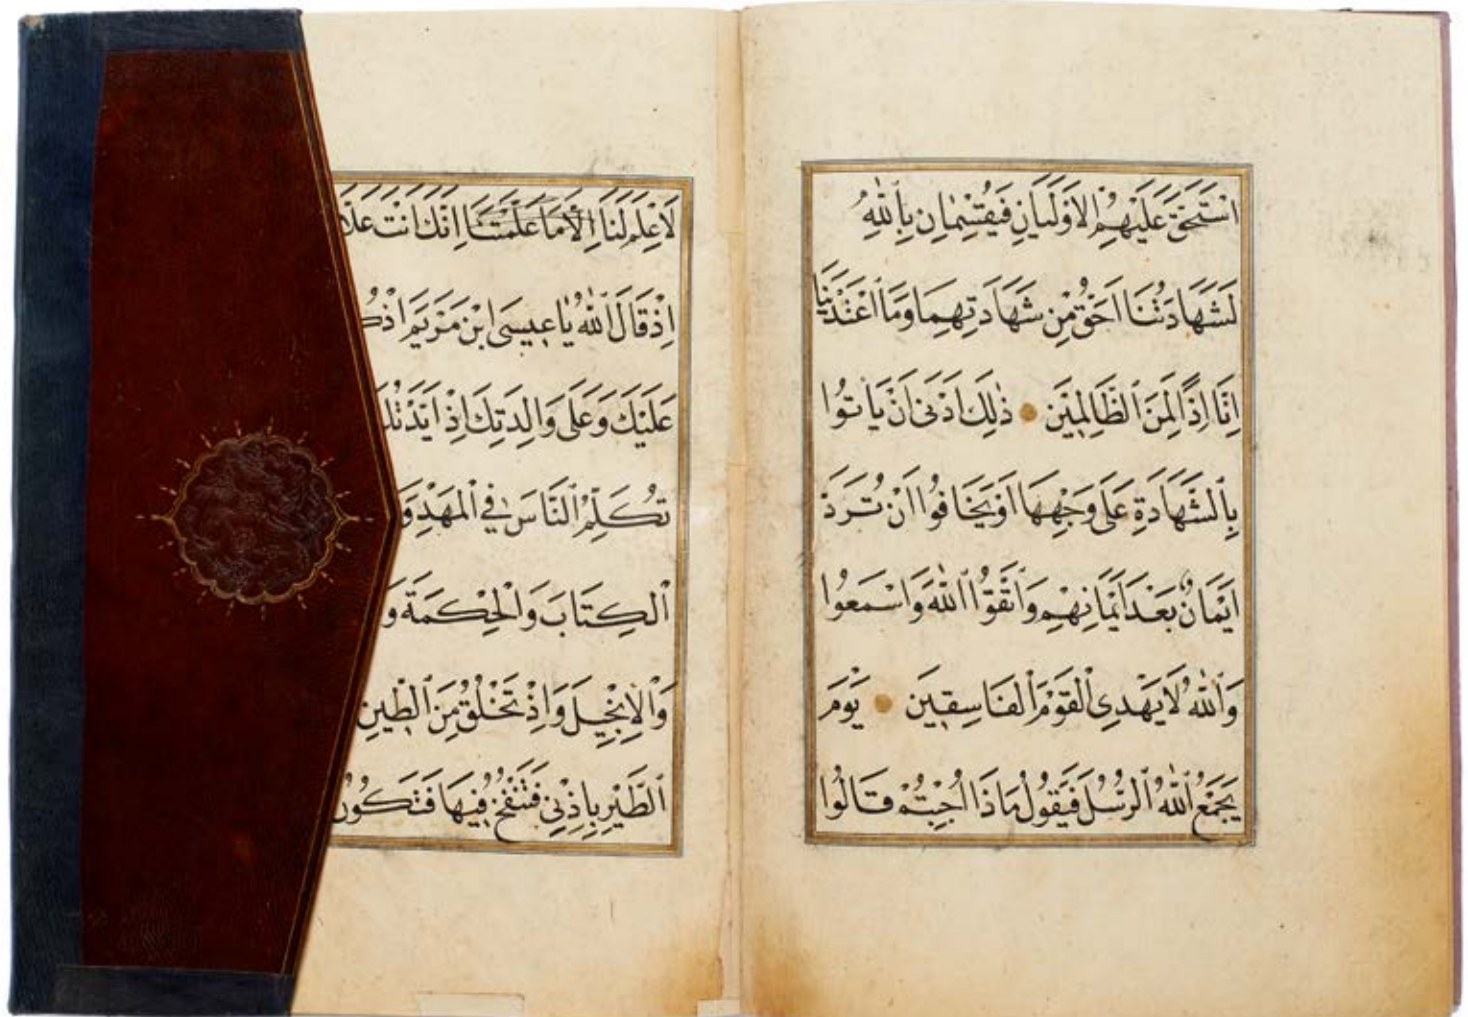 اسْتَحَقَّ عَلَيْهِمُ الْاَوْلَيَانِ فَيُقْسِمَانِ بِاللّٰهِ
لَشَهَادَتُنَا اَحَقُّ مِنْ شَهَادَتِهِمَا وَمَا اعْتَدَيْنَا
اِنَّا اِذًا لَمِنَ الظَّالِمِينَ ذٰلِكَ اَدْنَى اَنْ يَأْتُوا
بِالشَّهَادَةِ عَلَى وَجْهِهَا اَوْ يَخَافُوا اَنْ تُرَدَّ
اَيْمَانٌ بَعْدَ اَيْمَانِهِمْ وَاتَّقُوا اللّٰهَ وَاسْمَعُوا
وَاللّٰهُ لَا يَهْدِى الْقَوْمَ الْفَاسِقِينَ يَوْمَ
يَجْمَعُ اللّٰهُ الرُّسُلَ فَيَقُولُ مَاذَا اُجِبْتُمْ قَالُوا
لَا عِلْمَ لَنَا اِلَّا مَا عَلَّمْتَنَا اِنَّكَ اَنْتَ
اِذْ قَالَ اللّٰهُ يَا عِيسَى ابْنَ مَرْيَمَ
عَلَيْكَ وَعَلَى وَالِدَتِكَ اِذْ
تُكَلِّمُ النَّاسَ فِي الْمَهْدِ وَ
الْكِتَابَ وَالْحِكْمَةَ وَ
وَالْاِنْجِيلَ وَاِذْ تَخْلُقُ مِنَ الطِّينِ
الطَّيْرِ بِاِذْنِي فَتَنْفُخُ فِيهَا فَتَكُونُ